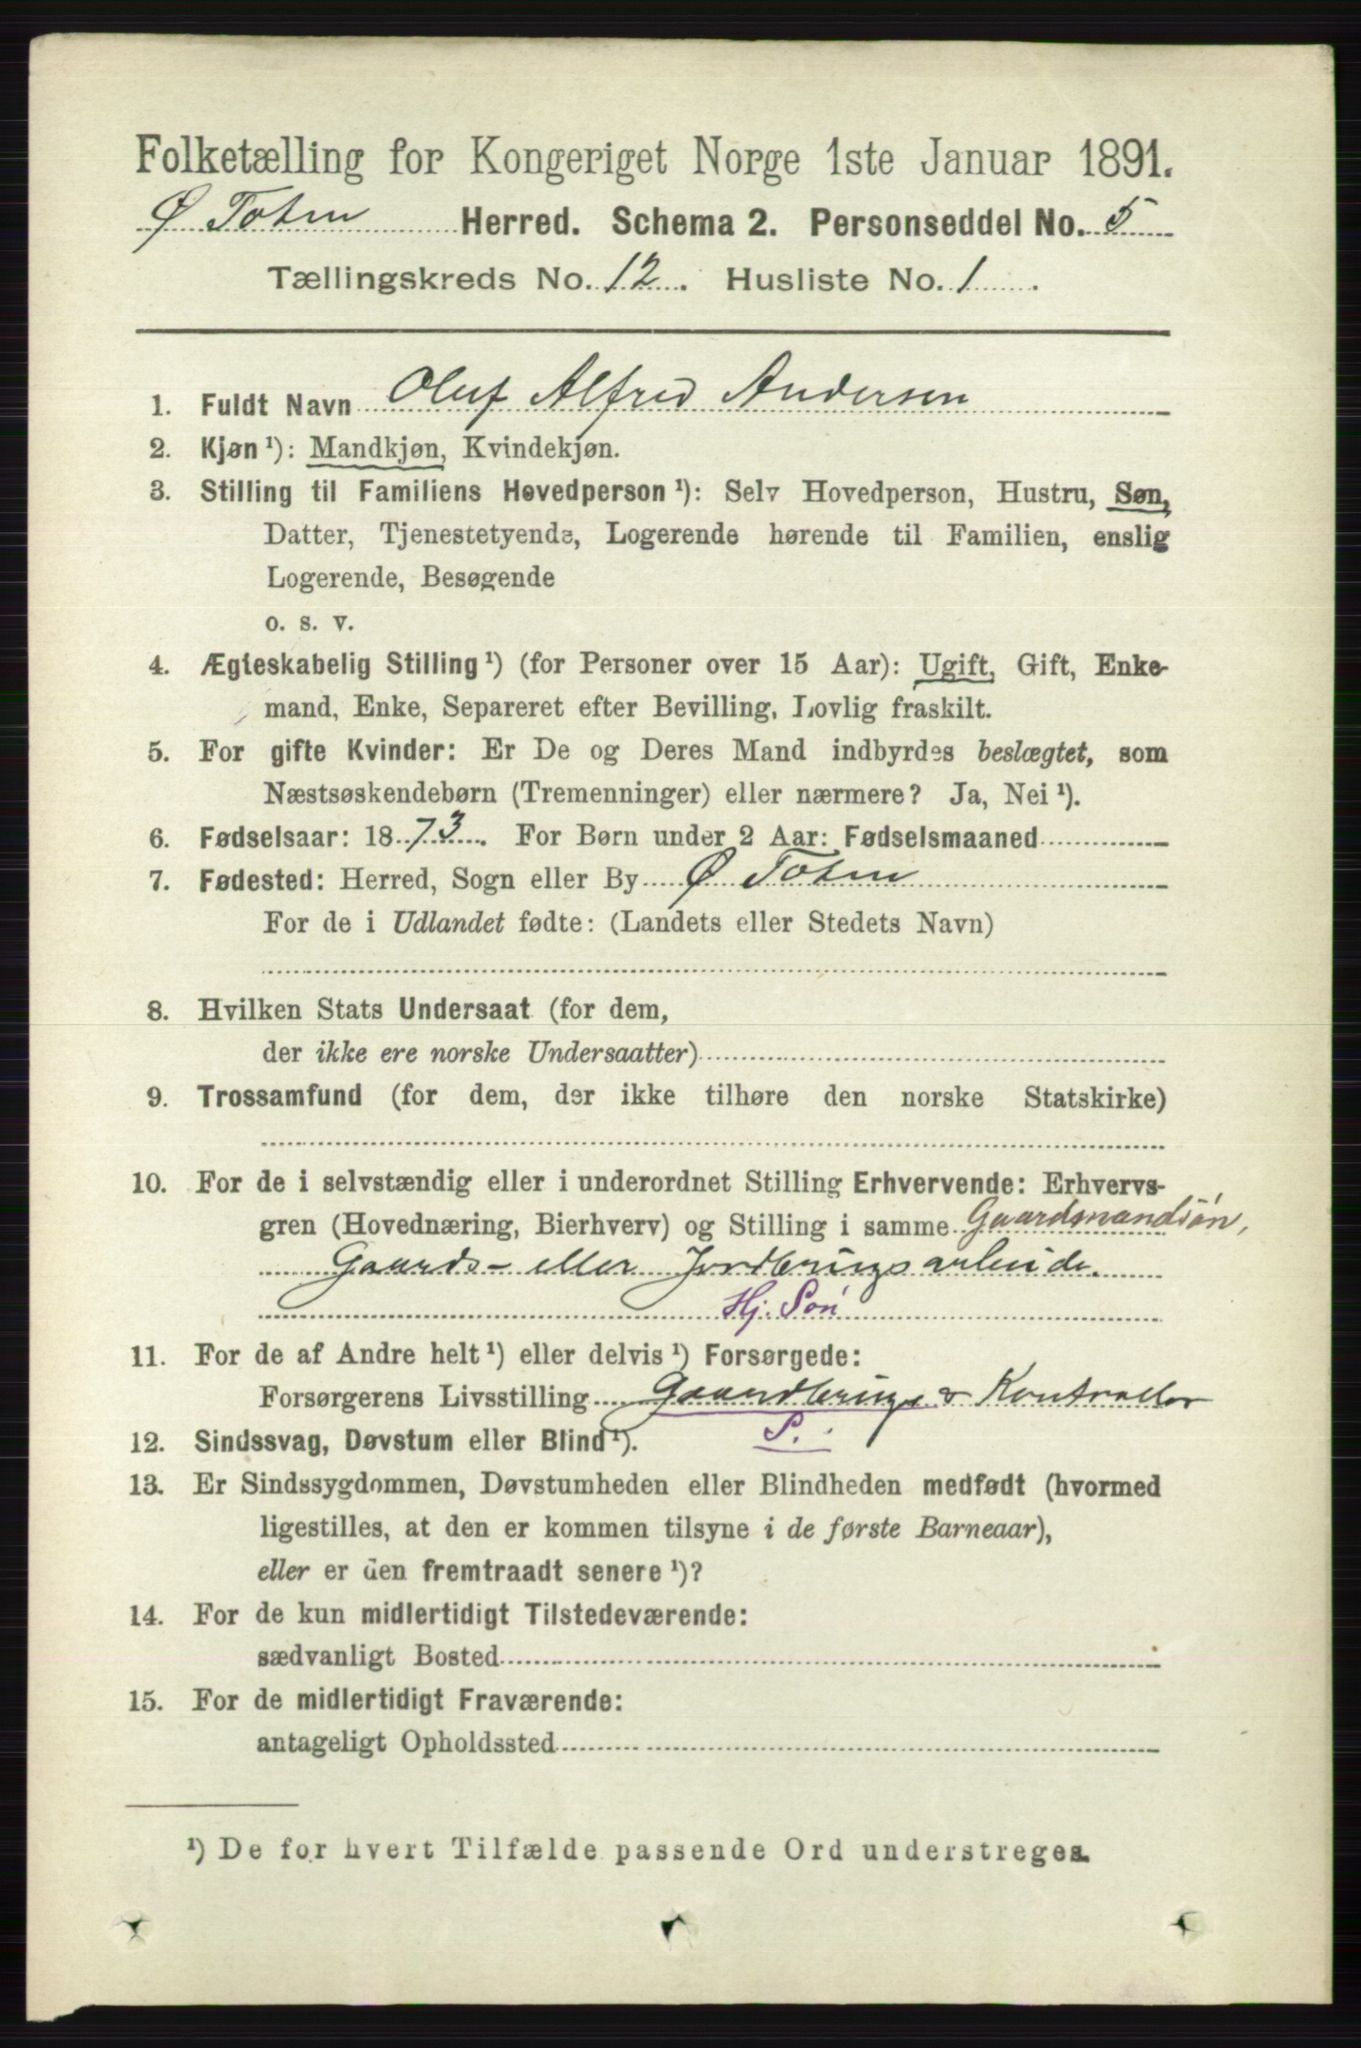 Folketælling for Kongeriget Norge 1ste Januar 1891.
Ø Toten Herred. Schema 2. Personseddel No. 5
Tællingskreds No. 12. Husliste No. 1.
1. Fuldt Navn Oluf Alfred Andersen
2. Kjøn ¹): Mandkjøn, Kvindekjøn.
3. Stilling til Familiens Hovedperson ¹): Selv Hovedperson, Hustru, Søn,
Datter, Tjenestetyende, Logerende hørende til Familien, enslig
Logerende, Besøgende
o. s. v.
4. Ægteskabelig Stilling ¹) (for Personer over 15 Aar): Ugift, Gift, Enke-
mand, Enke, Separeret efter Bevilling, Lovlig fraskilt.
5. For gifte Kvinder: Er De og Deres Mand indbyrdes beslægtet, som
Næstsøskendebørn (Tremenninger) eller nærmere? Ja, Nei ¹).
6. Fødselsaar: 1873. For Børn under 2 Aar: Fødselsmaaned
7. Fødested: Herred, Sogn eller By Ø Toten
For de i Udlandet fødte: (Landets eller Stedets Navn)
8. Hvilken Stats Undersaat (for dem,
der ikke ere norske Undersaatter)
9. Trossamfund (for dem, der ikke tilhøre den norske Statskirke)
10. For de i selvstændig eller i underordnet Stilling Erhvervende: Erhvervs-
gren (Hovednæring, Bierhverv) og Stilling i samme Gaardsmandsøn,
Gaards- eller Jordbrugsarbeide.
Hj. Søn
11. For de af Andre helt ¹) eller delvis ¹) Forsørgede:
Forsørgerens Livsstilling Gaardbruger & Kontrollør
S.
12. Sindssvag, Døvstum eller Blind ¹).
13. Er Sindssygdommen, Døvstumheden eller Blindheden medfødt (hvormed
ligestilles, at den er kommen tilsyne i de første Barneaar),
eller er den fremtraadt senere ¹)?
14. For de kun midlertidigt Tilstedeværende:
sædvanligt Bosted
15. For de midlertidigt Fraværende:
antageligt Opholdssted
¹) De for hvert Tilfælde passende Ord understreges.